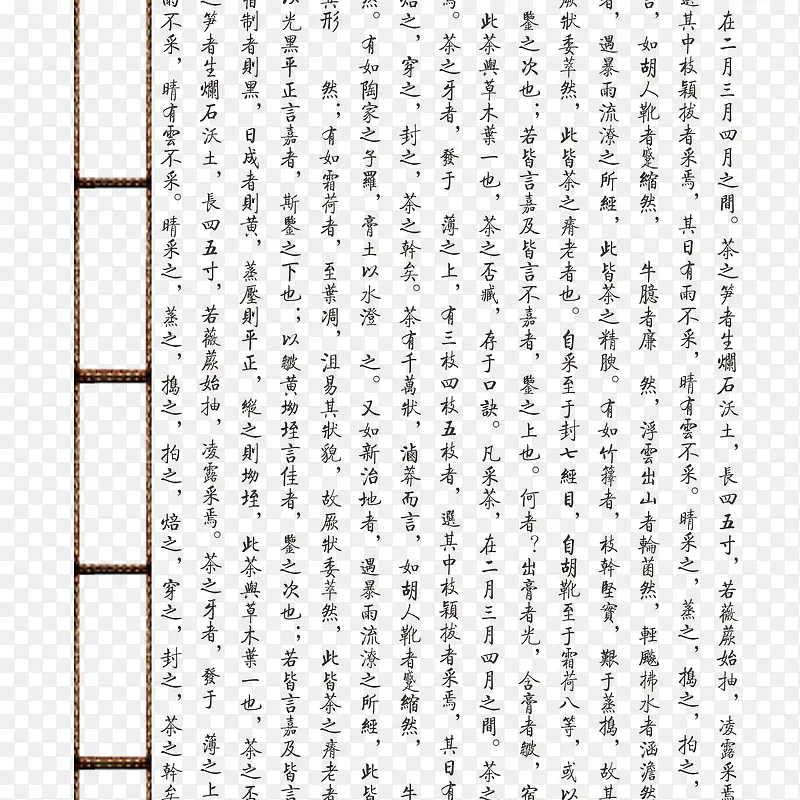 在二月三月四月之間。茶之笋者生爛石沃土，長四五寸，若薇蕨始抽，凌露采焉
選其中枝穎拔者采焉，其日有雨不采，晴有雲不采。晴采之，蒸之，搗之，拍之，
言，如胡人靴者蹙縮然，牛臆者廉 然，浮雲出山者輪菌然，輕飈拂水者涵澹然
者，遇暴雨流潦之所經，此皆茶之精腴。有如竹籜者，枝幹堅實，艱于蒸搗，故其
厥狀委萃然，此皆茶之瘠老者也。自采至于封七經目，自胡靴至于霜荷八等，或以
鑒之次也；若皆言嘉及皆言不嘉者，鑒之上也。何者？出膏者光，含膏者皺，宿
此茶與草木葉一也，茶之否臧，存于口訣。凡采茶，在二月三月四月之間。茶之
焉。茶之牙者，發于 薄之上，有三枝四枝五枝者，選其中枝穎拔者采焉，其日有
焙之，穿之，封之，茶之幹矣。茶有千萬狀，滷莽而言，如胡人靴者蹙縮然， 牛
然。有如陶家之子羅，膏土以水澄 之。又如新治地者，遇暴雨流潦之所經，此皆
其形 然；有如霜荷者，至葉凋，沮易其狀貌，故厥狀委萃然，此皆茶之瘠老者
以光黑平正言嘉者，斯鑒之下也；以皺黃坳垤言佳者，鑒之次也；若皆言嘉及皆言
宿制者則黑，日成者則黃，蒸壓則平正，縱之則坳垤，此茶與草木葉一也，茶之否
之笋者生爛石沃土，長四五寸，若薇蕨始抽，凌露采焉。茶之牙者，發于 薄之上
雨不采，晴有雲不采。晴采之，蒸之，搗之，拍之，焙之，穿之，封之，茶之幹矣